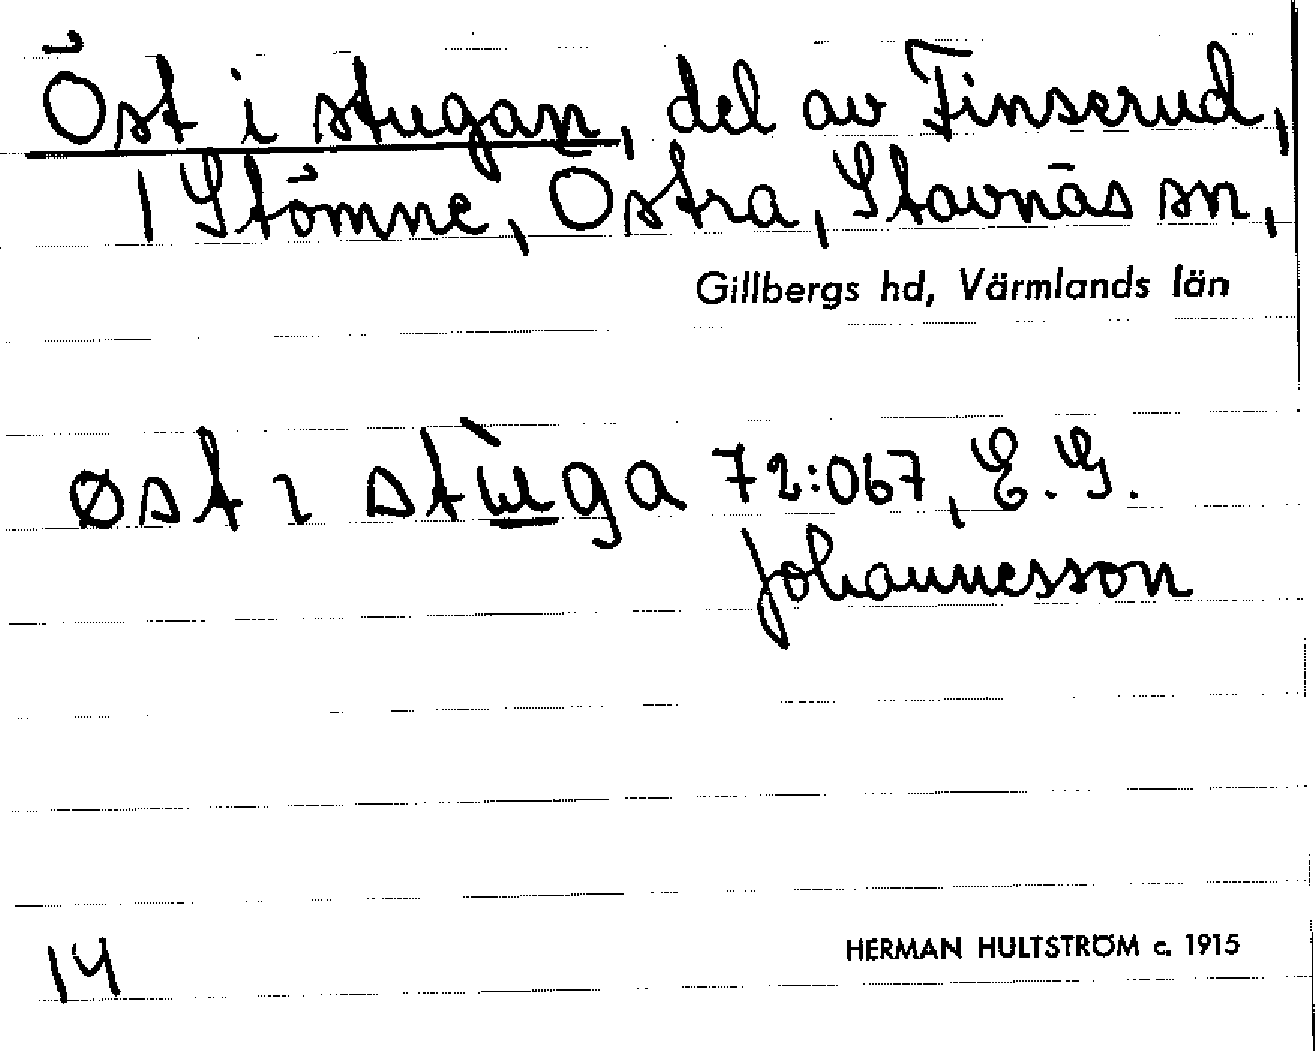 Öst i stugan, del av Finserud,
1 Stömne, Östra, Stavnäs sn,
Gillbergs hd, Värmlands län
øst ɩ stùga 72:067, E. G.
Johannesson
14
HERMAN HULTSTRÖM c. 1915